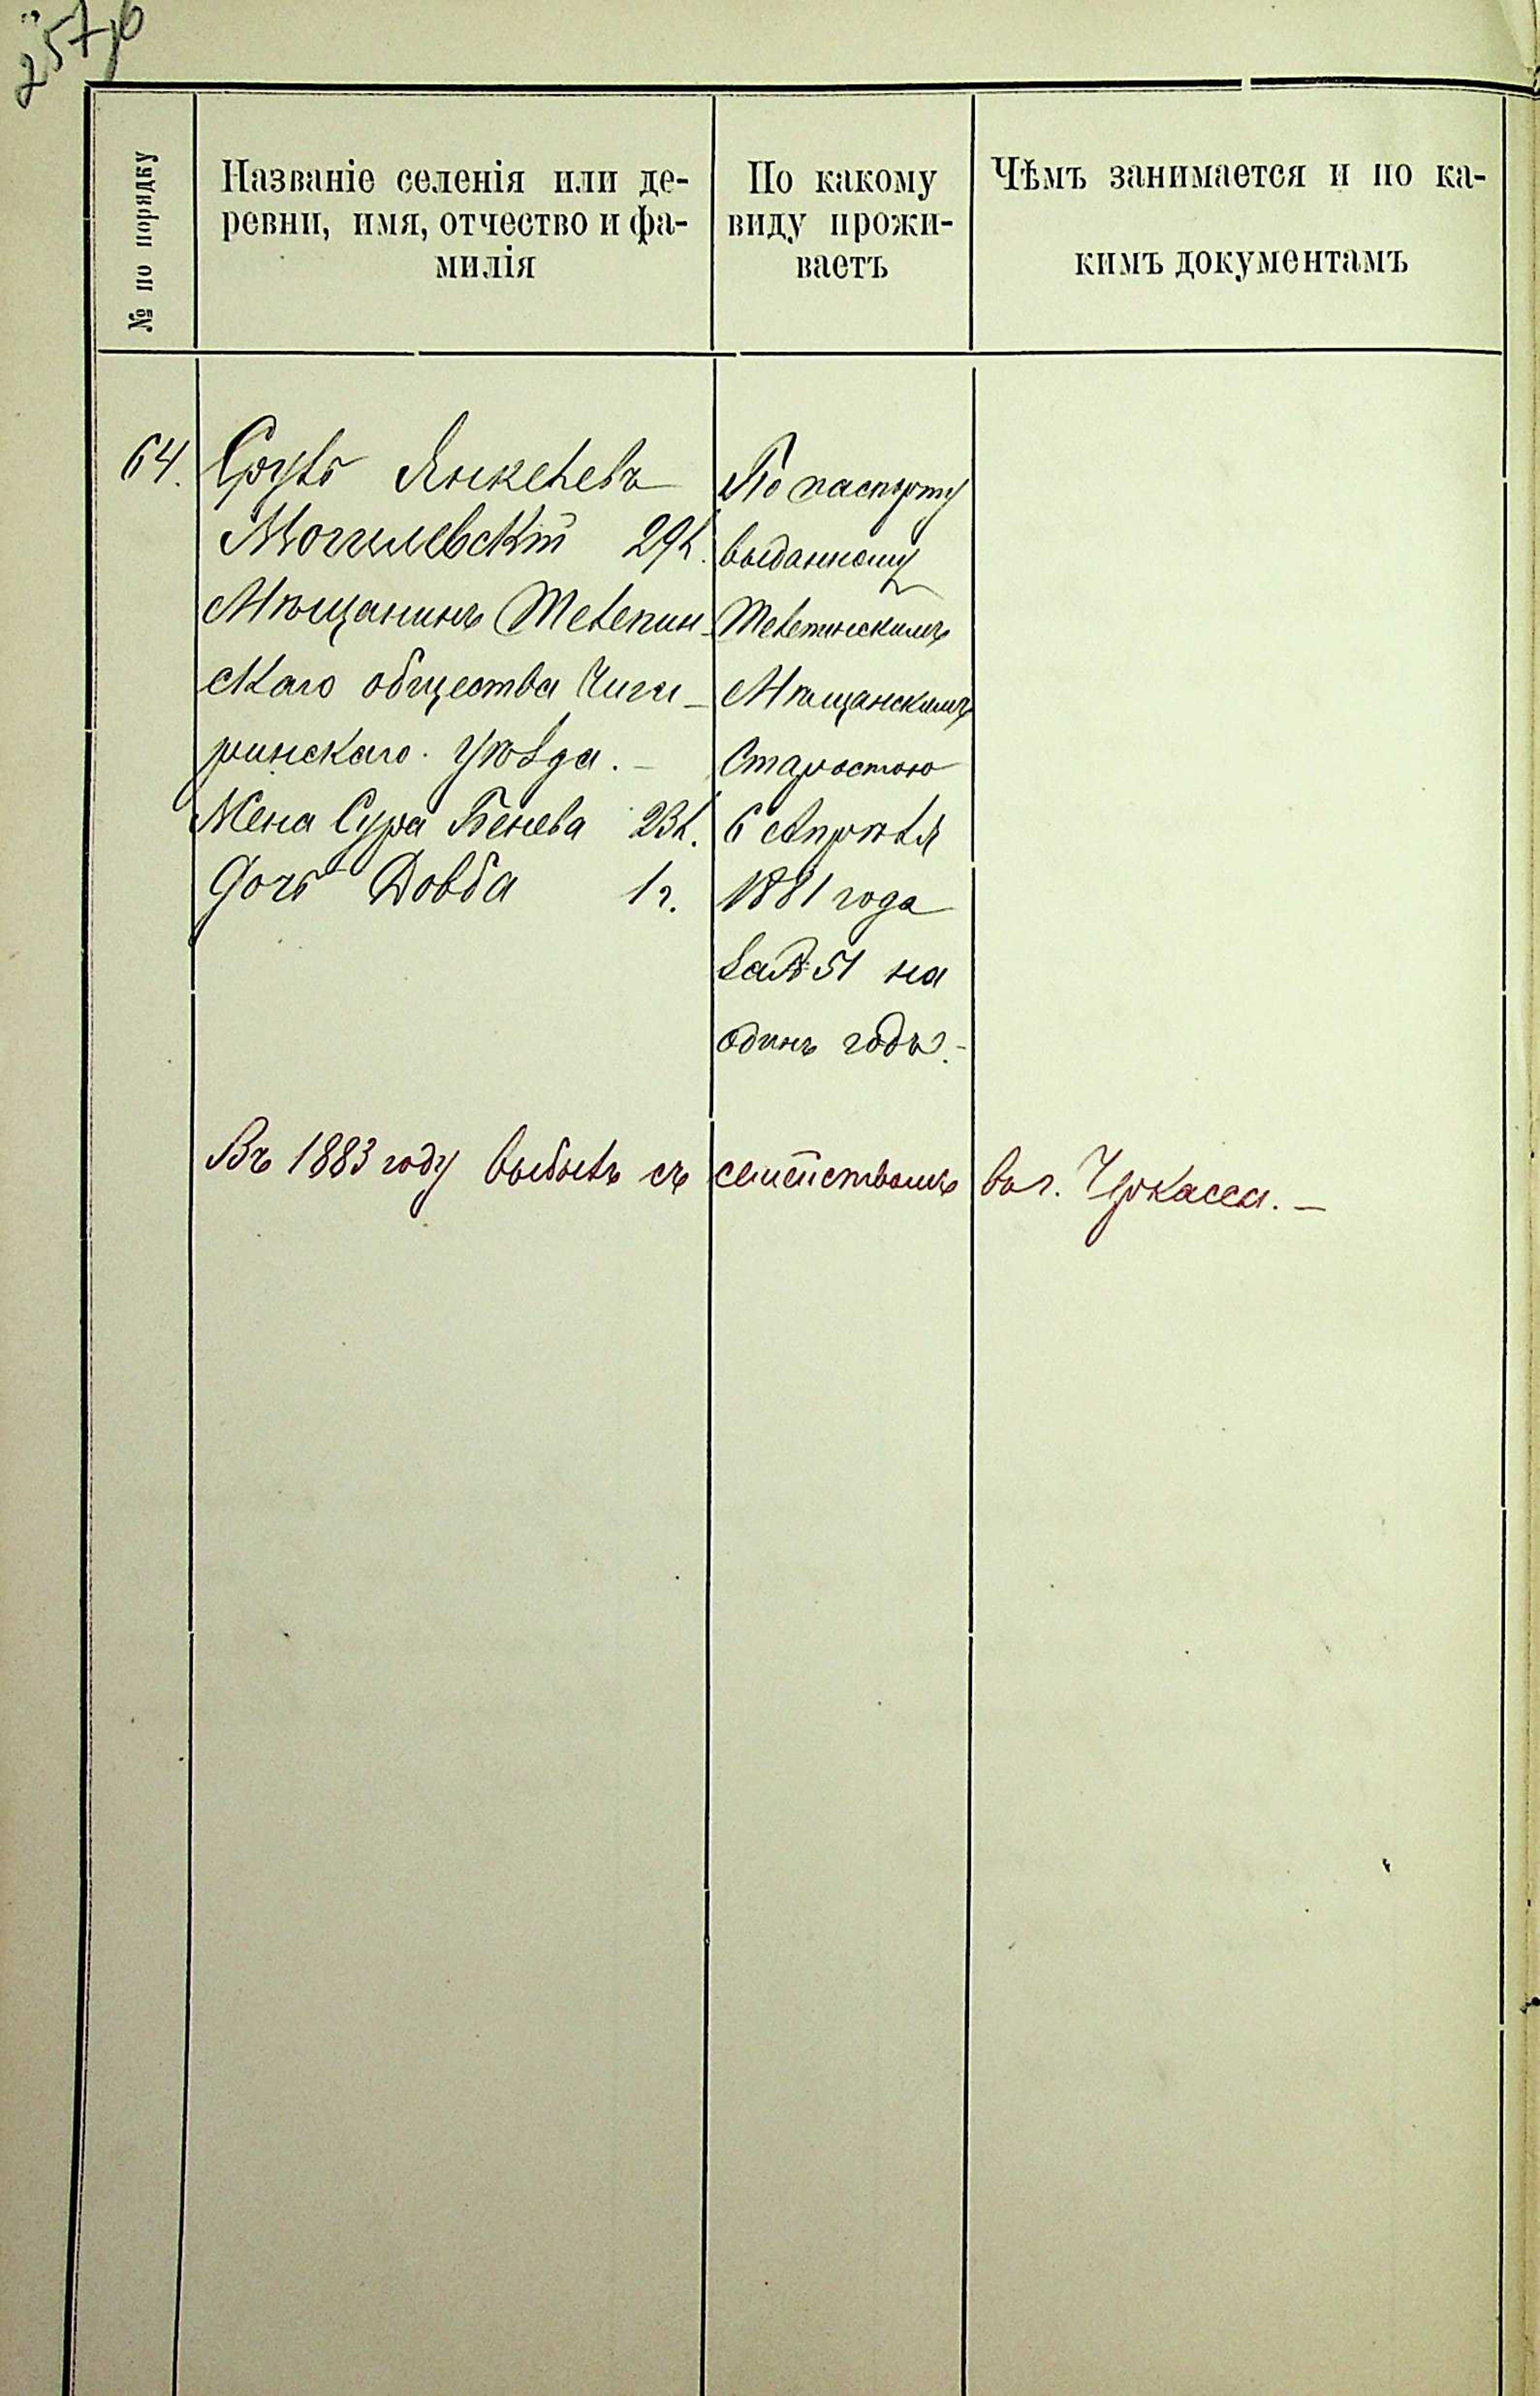 257об
№ по порядку
Названіе селенія или де-
ревни, имя, отчество и фа-
милія
По какому
виду прожи-
ваетъ
Чѣмъ занимается и по ка-
кимъ документамъ
64. Сруль Янкелевъ
Могилевскій 29 л.
Мѣщанинъ Телепин-
скаго общества Чиги-
ринскаго уѣзда. –
Жена Сура Бенева 23 л.
Дочь Довба 1 г.
По паспорту
выданному
Телепинскимъ
Мѣщанскимъ
Старостою
6 Апрѣля
1881 года
за № 51 на
одинъ годъ. –
Въ 1883 году выбылъ съ семействомъ в г. Черкассы. –